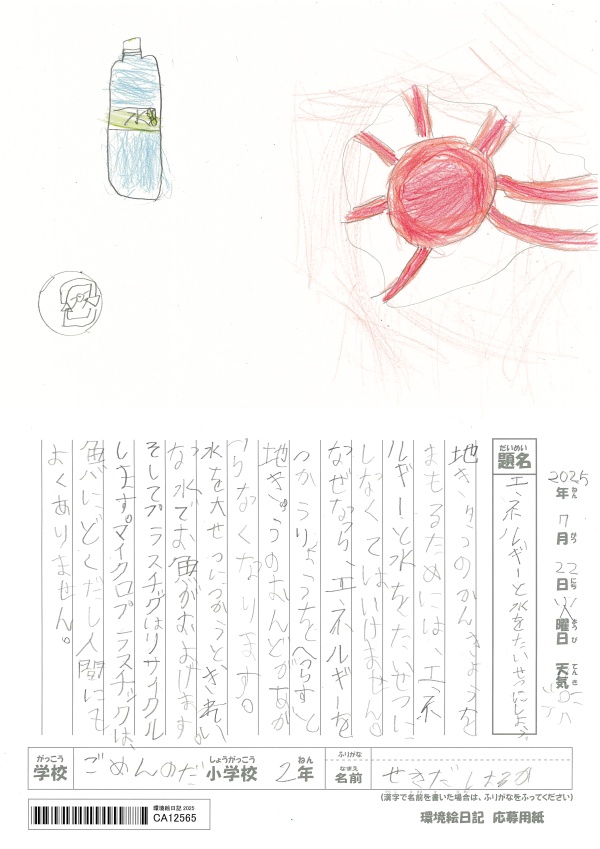 水
プラ
2025年7月22日火曜日 天気
ねん がつ にち ようび てんき
だいめい
題名 エネルギーと水をたいせつにしよう
地きゅうのかんきょうを
まもるためには、エネ
ルギーと水をたいせつに
しなくてはいけません。
なぜなら、エネルギーを
つかうりょうをへらすと
地きゅうのおんどがあが
らなくなります。
水を大せつにつかうときれい
な水でお魚がおよげます。
そしてプラスチックはリサイクル
します。マイクロプラスチックは、
魚にどくだし人間にも
よくありません。
がっこう しょうがっこう ねん
学校 ごめんのだ 小学校 2年
ふりがな
なまえ
名前 せきだ
(漢字で名前を書いた場合は、ふりがなをふってください)
環境絵日記 2025
CA12565
環境絵日記 応募用紙